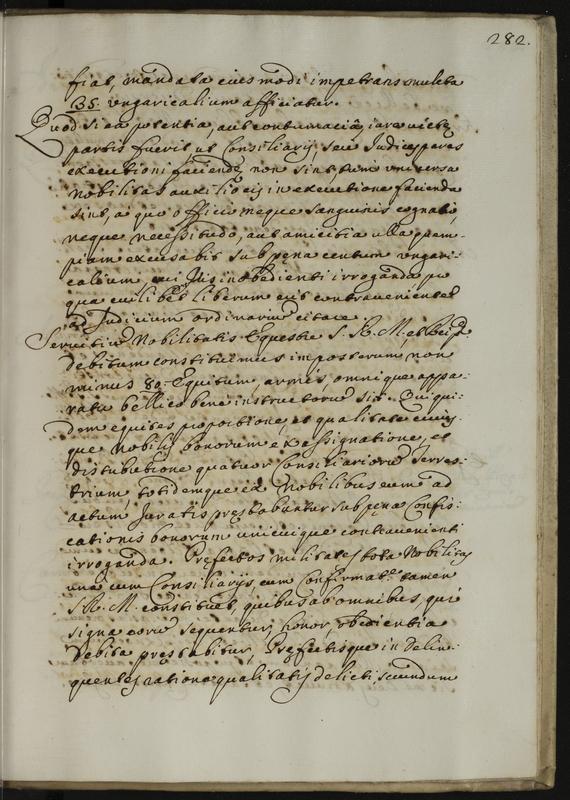 282.
fiat, mandata eiusmodi impetrans mulcta
35. ungaricalium afficiatur.
Quod si ea potentia, aut contumacia, iure victę
partis fuerit ut Consiliarij, seu Iudices pares
executioni faciendę non sint, tum universa
nobilitas auxilio eis in executione facienda
sint, à quo officio neque sanguinis cognatio,
neque necessitudo, aut amicitia ulla quem-
piam excusabit sub pęna centum ungari-
calium cuilibet inobedienti irroganda, pro
qua cuilibet liberum erit contravenientes
ad Iudicium ordinariũ citare.
Servitiũ Nobilitatis Equestre S. R. M. et Reip.
debitum constituimus imposterum, non
minus 80. Equitum, armis, omnique appa-
ratu bellico bene instructorũ sit. Qui qui-
dem equites proportione, et qualitate cuius-
que nobilis bonorum ex assignatione, et
distributione quatuor Consiliariorũ terres-
trium, totidemque ex Nobilibus eum ad
actum Iuratis pręstabuntur sub pęna Confis-
cationis bonorum unicuique contravenienti
irroganda. Pręfectos militares tota Nobilitas
una cum Consiliarijs, cum Confirmat.ne tamen
S. R. M. constituet, quibus ab omnibus, qui
signa eorũ sequentur, honor, obedientia
debita pręstabitur, Pręfectisque in delin-
quentes ratione qualitatis delicti, secundum